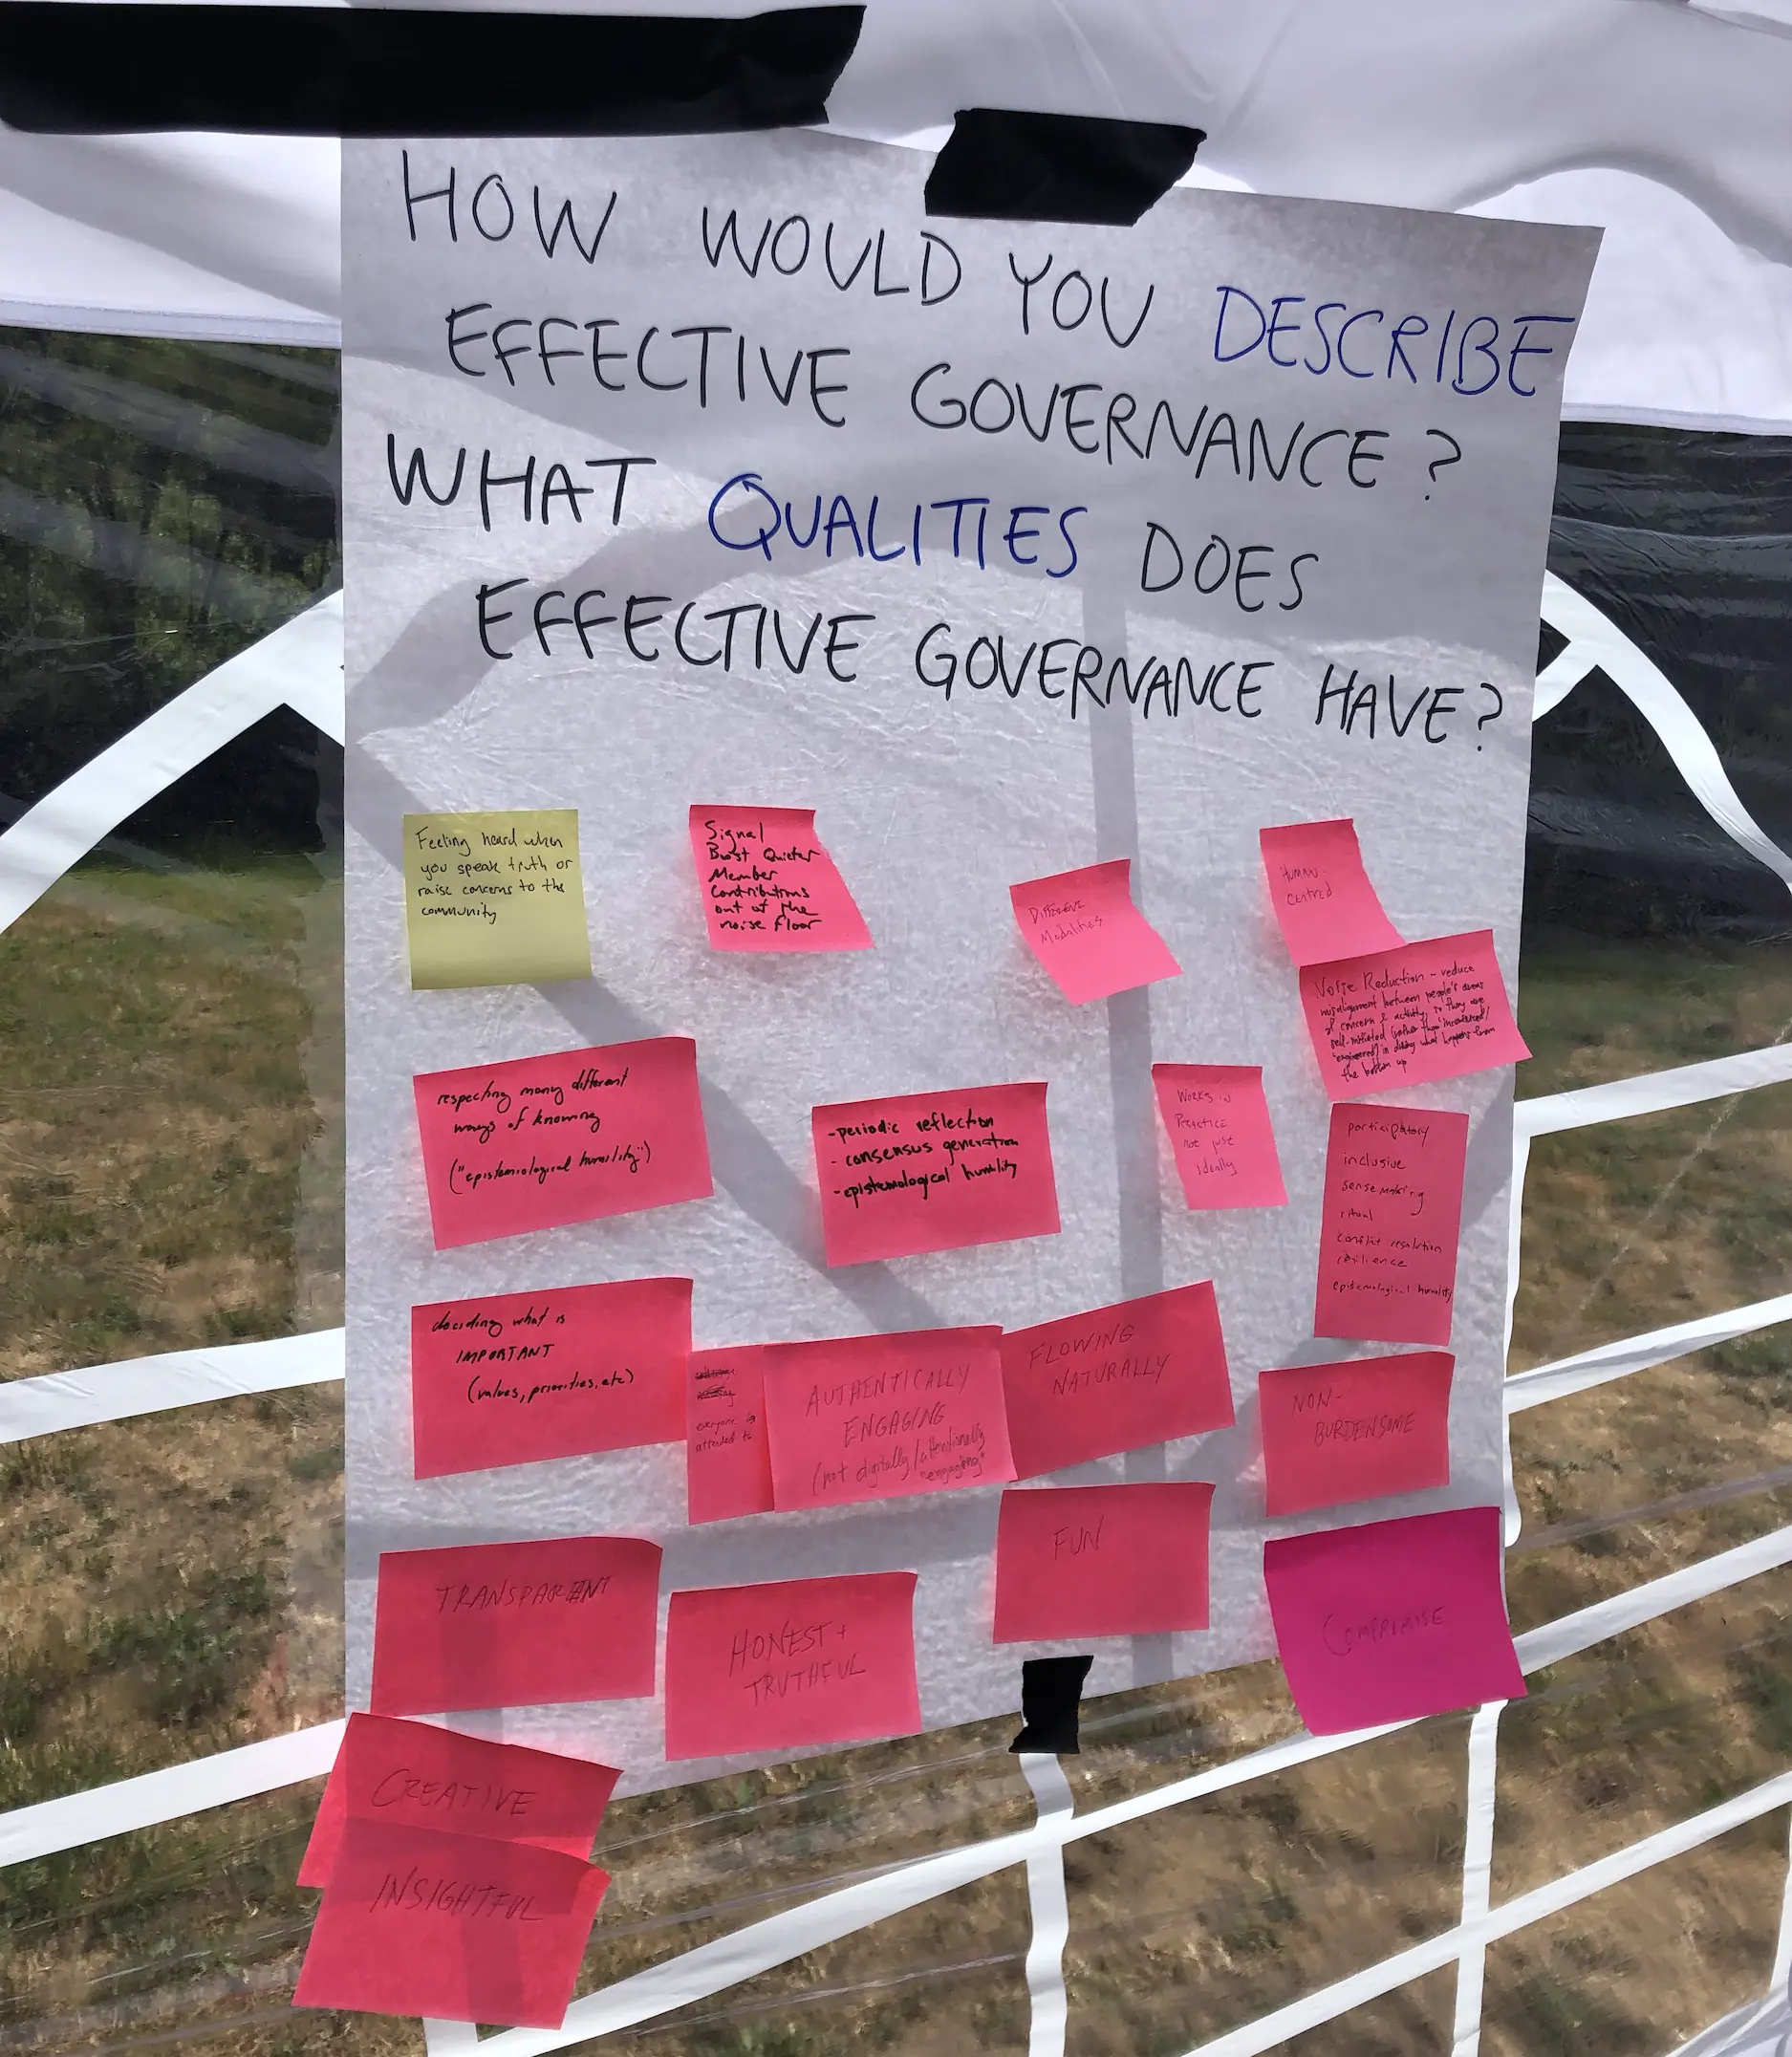 HOW WOULD YOU DESCRIBE
EFFECTIVE GOVERNANCE?
WHAT QUALITIES DOES
EFFECTIVE GOVERNANCE HAVE?
Feeling heard when
you speak truth or
raise concerns to the
community
Signal
Boost Quieter
Member
Contributions
out of the
noise floor
DIFFERENT
Modalities
HUMAN
Centred
Noise Reduction - reduce
misalignment between people's areas
of concern & activity, so they are
self-initiated (rather than incentivized/
"engineered) in doing what happens from
the bottom up
respecting many different
ways of knowing
("epistemiological humility")
-periodic reflection
- consensus generation
-epistemological humility
WORKS IN
PRACTICE
not just
Ideally
participatory
inclusive
sense making
ritual
conflict resolution
resilience
epistemological humility
deciding what is
IMPORTANT
(values, priorities, etc)
everyone is
attended to
AUTHENTICALLY
ENGAGING
(not digitally/attentionally
"engaging"
FLOWING
NATURALLY
NON-
BURDENSOME
TRANSPARENT
HONEST +
TRUTHFUL
FUN
COMPROMISE
CREATIVE
INSIGHTFUL